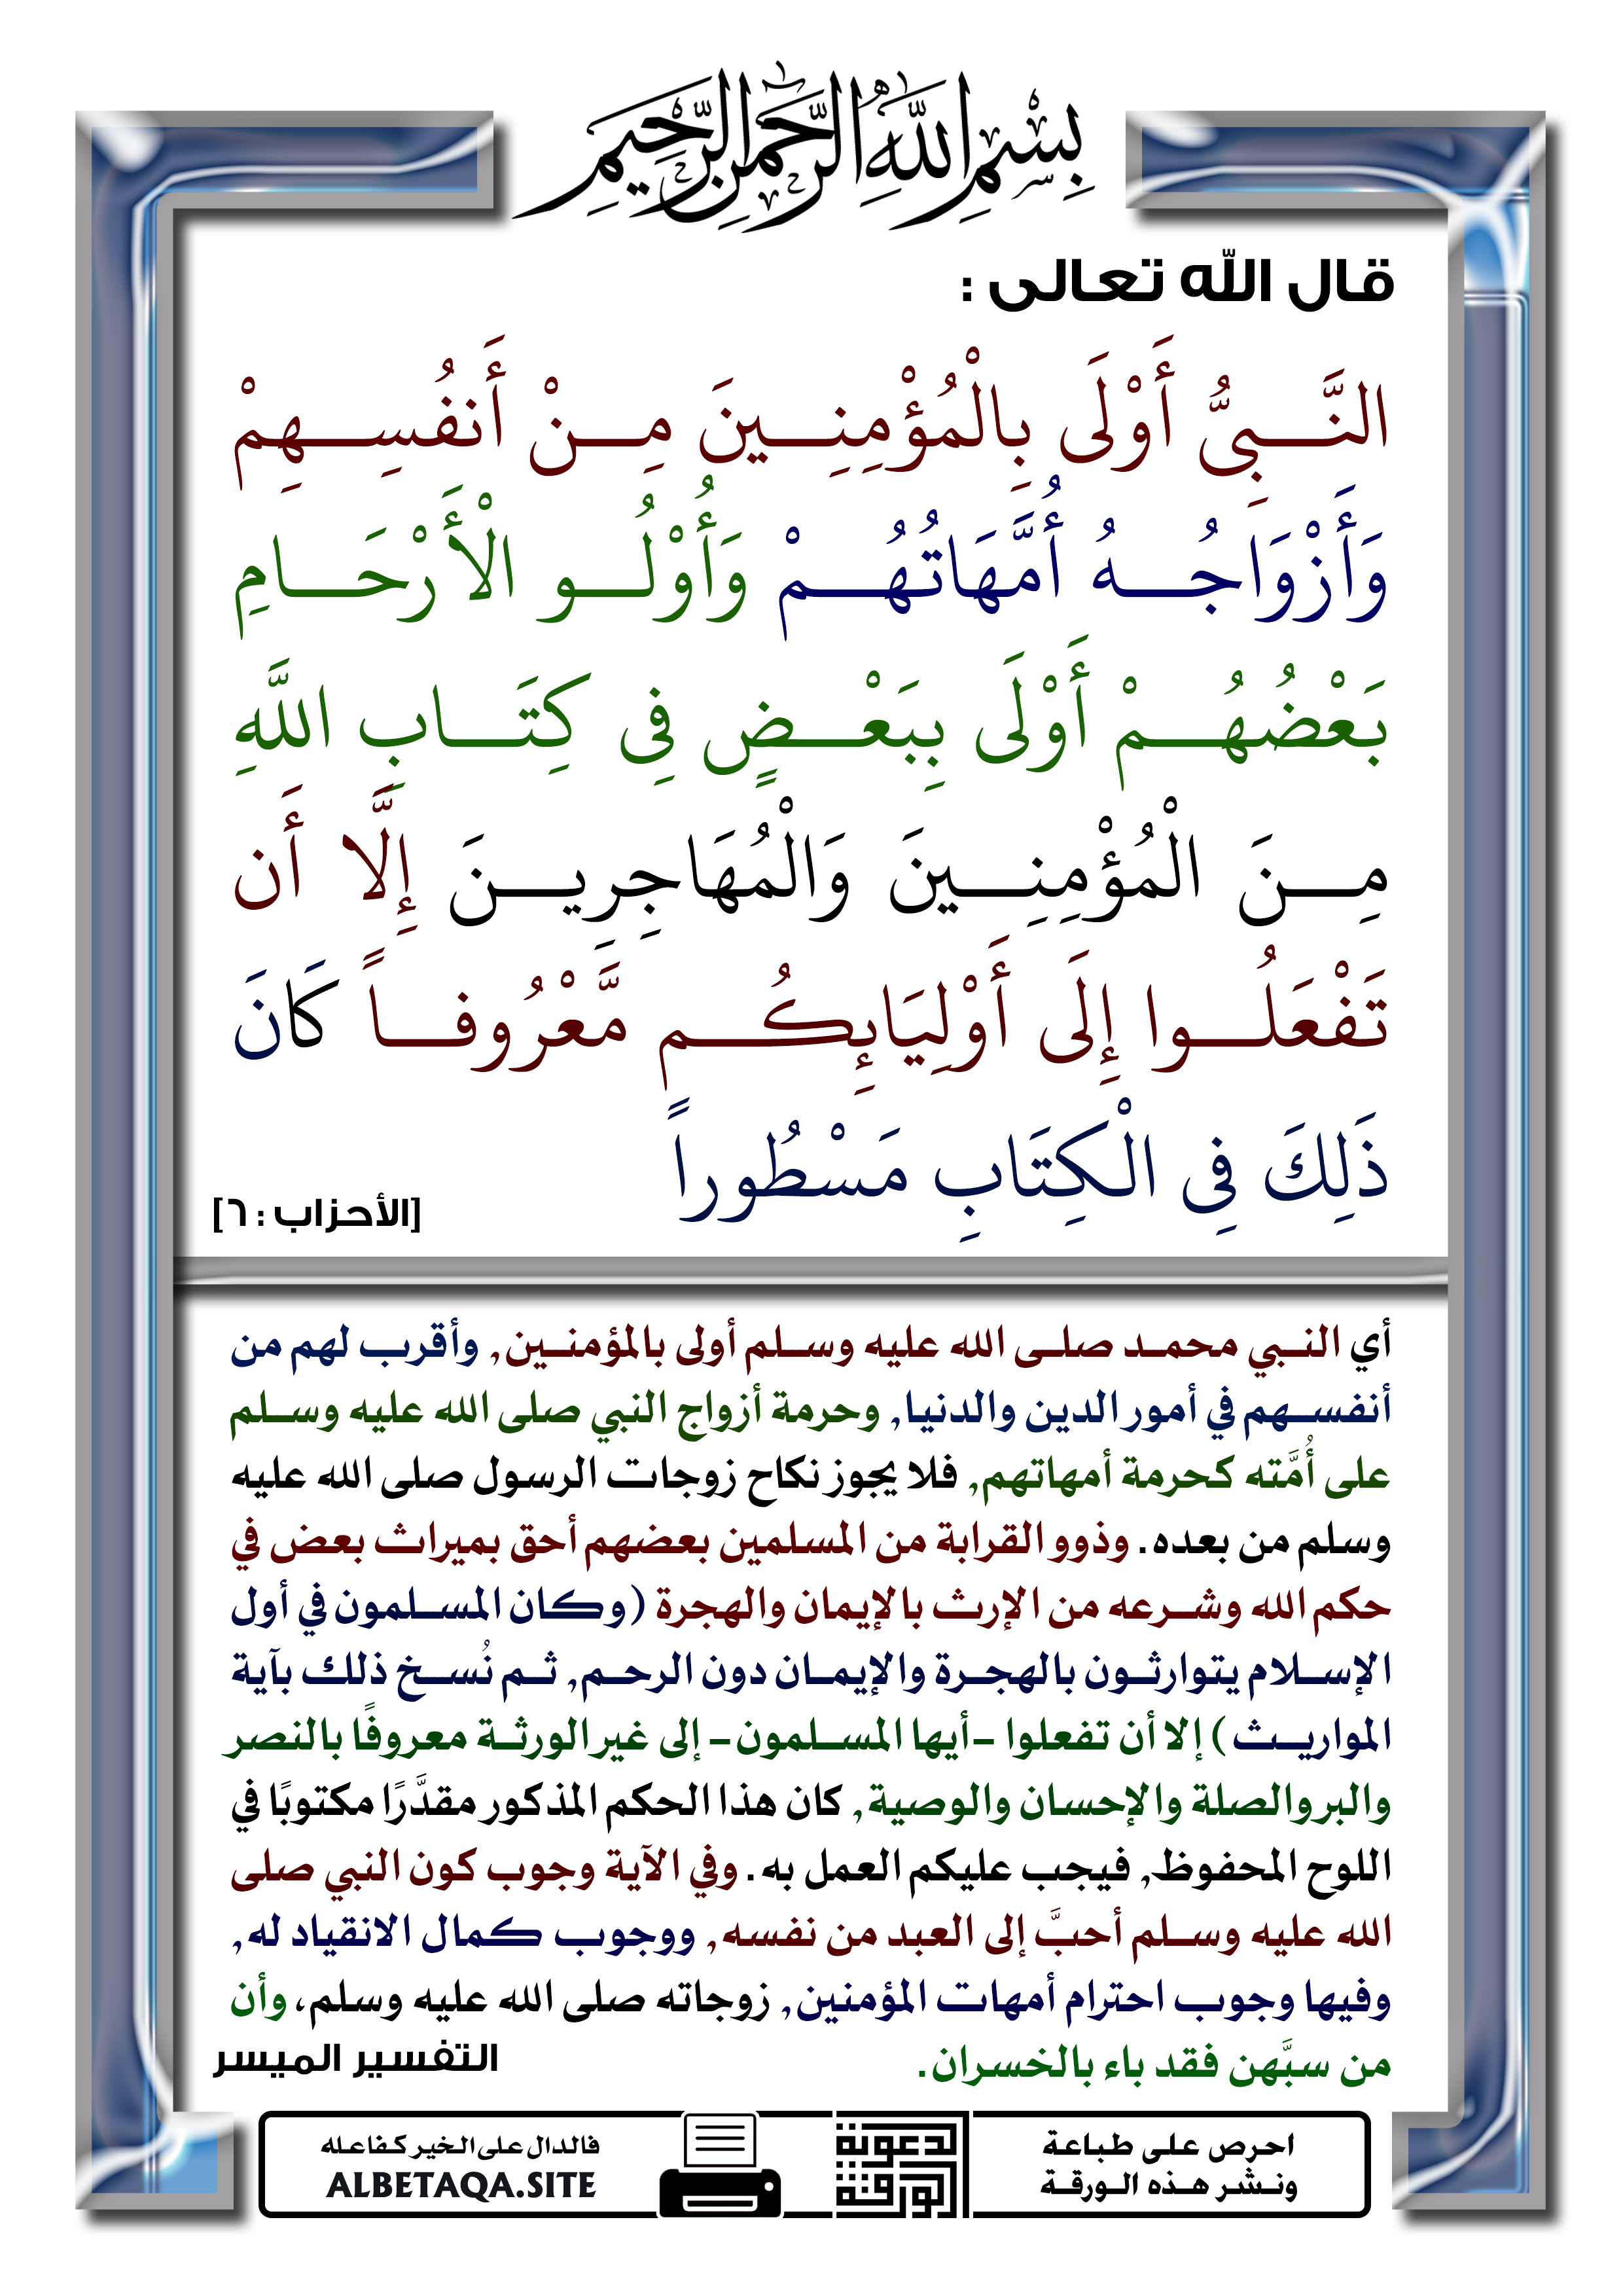 بِسْمِ اللَّهِ الرَّحْمَٰنِ الرَّحِيمِ
قال الله تعالى :
النَّبِيُّ أَوْلَى بِالْمُؤْمِنِينَ مِنْ أَنفُسِهِمْ
وَأَزْوَاجُهُ أُمَّهَاتُهُمْ وَأُوْلُو الْأَرْحَامِ
بَعْضُهُمْ أَوْلَى بِبَعْضٍ فِي كِتَابِ اللَّهِ
مِنَ الْمُؤْمِنِينَ وَالْمُهَاجِرِينَ إِلَّا أَن
تَفْعَلُوا إِلَى أَوْلِيَائِكُم مَّعْرُوفاً كَانَ
ذَلِكَ فِي الْكِتَابِ مَسْطُوراً
[الأحزاب : ٦]
أي النبي محمد صلى الله عليه وسلم أولى بالمؤمنين, وأقرب لهم من
أنفسهم في أمور الدين والدنيا, وحرمة أزواج النبي صلى الله عليه وسلم
على أُمَّته كحرمة أمهاتهم, فلا يجوز نكاح زوجات الرسول صلى الله عليه
وسلم من بعده. وذوو القرابة من المسلمين بعضهم أحق بميراث بعض في
حكم الله وشرعه من الإرث بالإيمان والهجرة (وكان المسلمون في أول
الإسلام يتوارثون بالهجرة والإيمان دون الرحم, ثم نُسخ ذلك بآية
المواريث) إلا أن تفعلوا -أيها المسلمون- إلى غير الورثة معروفًا بالنصر
والبر والصلة والإحسان والوصية, كان هذا الحكم المذكور مقدَّرًا مكتوبًا في
اللوح المحفوظ, فيجب عليكم العمل به. وفي الآية وجوب كون النبي صلى
الله عليه وسلم أحبَّ إلى العبد من نفسه, ووجوب كمال الانقياد له,
وفيها وجوب احترام أمهات المؤمنين, زوجاته صلى الله عليه وسلم، وأن
من سبَّهن فقد باء بالخسران.
التفسير الميسر
احرص على طباعة
ونشر هذه الورقة
الورقة
الدعوية
فالدال على الخير كفاعله
ALBETAQA.SITE